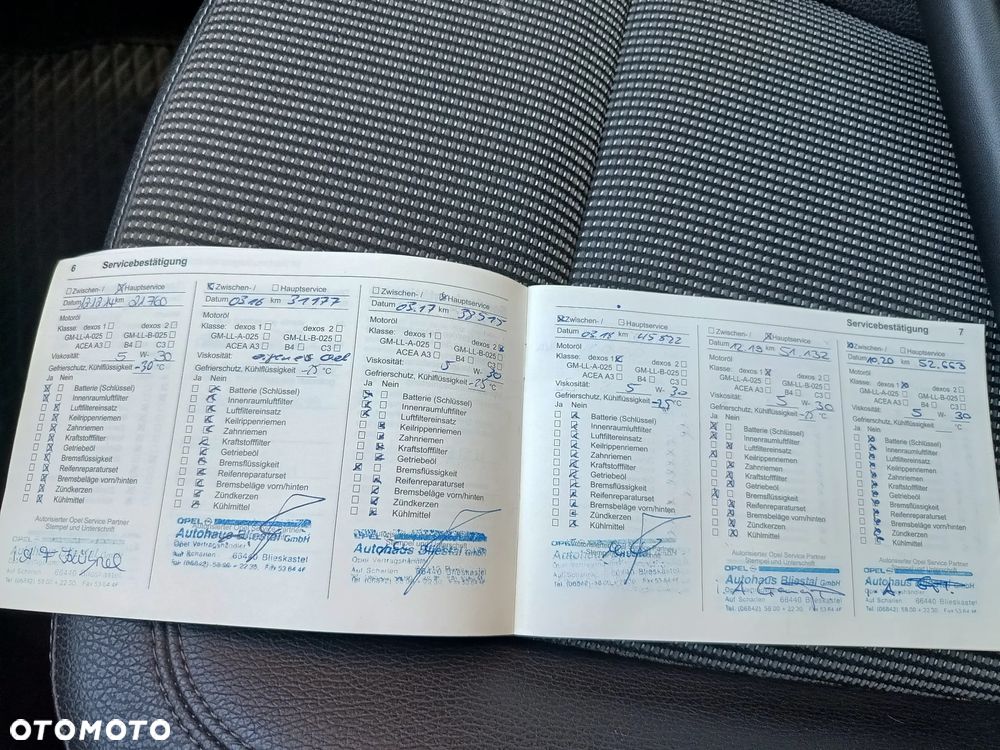 6 Servicebestätigung
☐ Zwischen- / ☒ Hauptservice
Datum 12.12.14 km 21760
Motoröl
Klasse: dexos 1 ☐ dexos 2 ☐
GM-LL-A-025 ☐ GM-LL-B-025 ☐
ACEA A3 ☐ B4 ☐ C3 ☐
Viskosität: 5 W- 30
Gefrierschutz, Kühlflüssigkeit -30 °C
Ja Nein
Batterie (Schlüssel)
Innenraumluftfilter
Luftfiltereinsatz
Keilrippenriemen
Zahnriemen
Kraftstofffilter
Getriebeöl
Bremsflüssigkeit
Reifenreparaturset
Bremsbeläge vorn/hinten
Zündkerzen
Kühlmittel
Autorisierter Opel Service Partner
Stempel und Unterschrift
☒ Zwischen- / ☐ Hauptservice
Datum 03.16 km 31177
Motoröl
Klasse: dexos 1 ☐ dexos 2 ☐
GM-LL-A-025 ☐ GM-LL-B-025 ☐
ACEA A3 ☐ B4 ☐ C3 ☐
Viskosität:
Gefrierschutz, Kühlflüssigkeit -25 °C
Ja Nein
Batterie (Schlüssel)
Innenraumluftfilter
Luftfiltereinsatz
Keilrippenriemen
Zahnriemen
Kraftstofffilter
Getriebeöl
Bremsflüssigkeit
Reifenreparaturset
Bremsbeläge vorn/hinten
Zündkerzen
Kühlmittel
OPEL
Autohaus Bliestal GmbH
Opel Vertragshändler
Auf Scharlen 66440 Blieskastel
Tel. (06842) 58.00 + 22.30, Fax 53 64 4F
☐ Zwischen- / ☒ Hauptservice
Datum 03.17 km 39515
Motoröl
Klasse: dexos 1 ☐ dexos 2 ☒
GM-LL-A-025 ☐ GM-LL-B-025 ☐
ACEA A3 ☐ B4 ☐ C3 ☐
Viskosität: 5 W- 30
Gefrierschutz, Kühlflüssigkeit -25 °C
Ja Nein
Batterie (Schlüssel)
Innenraumluftfilter
Luftfiltereinsatz
Keilrippenriemen
Zahnriemen
Kraftstofffilter
Getriebeöl
Bremsflüssigkeit
Reifenreparaturset
Bremsbeläge vorn/hinten
Zündkerzen
Kühlmittel
OPEL
Autohaus Bliestal GmbH
Servicebestätigung 7
☒ Zwischen- / ☐ Hauptservice
Datum 03.18 km 45822
Motoröl
Klasse: dexos 1 ☒ dexos 2 ☐
GM-LL-A-025 ☐ GM-LL-B-025 ☐
ACEA A3 ☐ B4 ☐ C3 ☐
Viskosität: 5 W- 30
Gefrierschutz, Kühlflüssigkeit -25 °C
Ja Nein
Batterie (Schlüssel)
Innenraumluftfilter
Luftfiltereinsatz
Keilrippenriemen
Zahnriemen
Kraftstofffilter
Getriebeöl
Bremsflüssigkeit
Reifenreparaturset
Bremsbeläge vorn/hinten
Zündkerzen
Kühlmittel
☐ Zwischen- / ☒ Hauptservice
Datum 12.19 km 51.132
Motoröl
Klasse: dexos 1 ☒ dexos 2 ☐
GM-LL-A-025 ☐ GM-LL-B-025 ☐
ACEA A3 ☐ B4 ☐ C3 ☐
Viskosität: 5 W- 30
Gefrierschutz, Kühlflüssigkeit °C
Ja Nein
Batterie (Schlüssel)
Innenraumluftfilter
Luftfiltereinsatz
Keilrippenriemen
Zahnriemen
Kraftstofffilter
Getriebeöl
Bremsflüssigkeit
Reifenreparaturset
Bremsbeläge vorn/hinten
Zündkerzen
Kühlmittel
Autorisierter Opel Service Partner
Stempel und Unterschrift
OPEL
Autohaus Bliestal GmbH
Opel Vertragshändler
Auf Scharlen 66440 Blieskastel
Tel. (06842) 58.00 + 22.30, Fax 53 64 4F
☒ Zwischen- / ☐ Hauptservice
Datum 10.20 km 52.663
Motoröl
Klasse: dexos 1 ☒ dexos 2 ☐
GM-LL-A-025 ☐ GM-LL-B-025 ☐
ACEA A3 ☐ B4 ☐ C3 ☐
Viskosität: 5 W- 30
Gefrierschutz, Kühlflüssigkeit °C
Ja Nein
Batterie (Schlüssel)
Innenraumluftfilter
Luftfiltereinsatz
Keilrippenriemen
Zahnriemen
Kraftstofffilter
Getriebeöl
Bremsflüssigkeit
Reifenreparaturset
Bremsbeläge vorn/hinten
Zündkerzen
Kühlmittel
Autorisierter Opel Service Partner
Stempel und Unterschrift
OPEL
Autohaus
Auf Scharlen 66440 Blieskastel
Tel. (06842) 58.00 + 22.30, Fax 53 64 4F
OTOMOTO